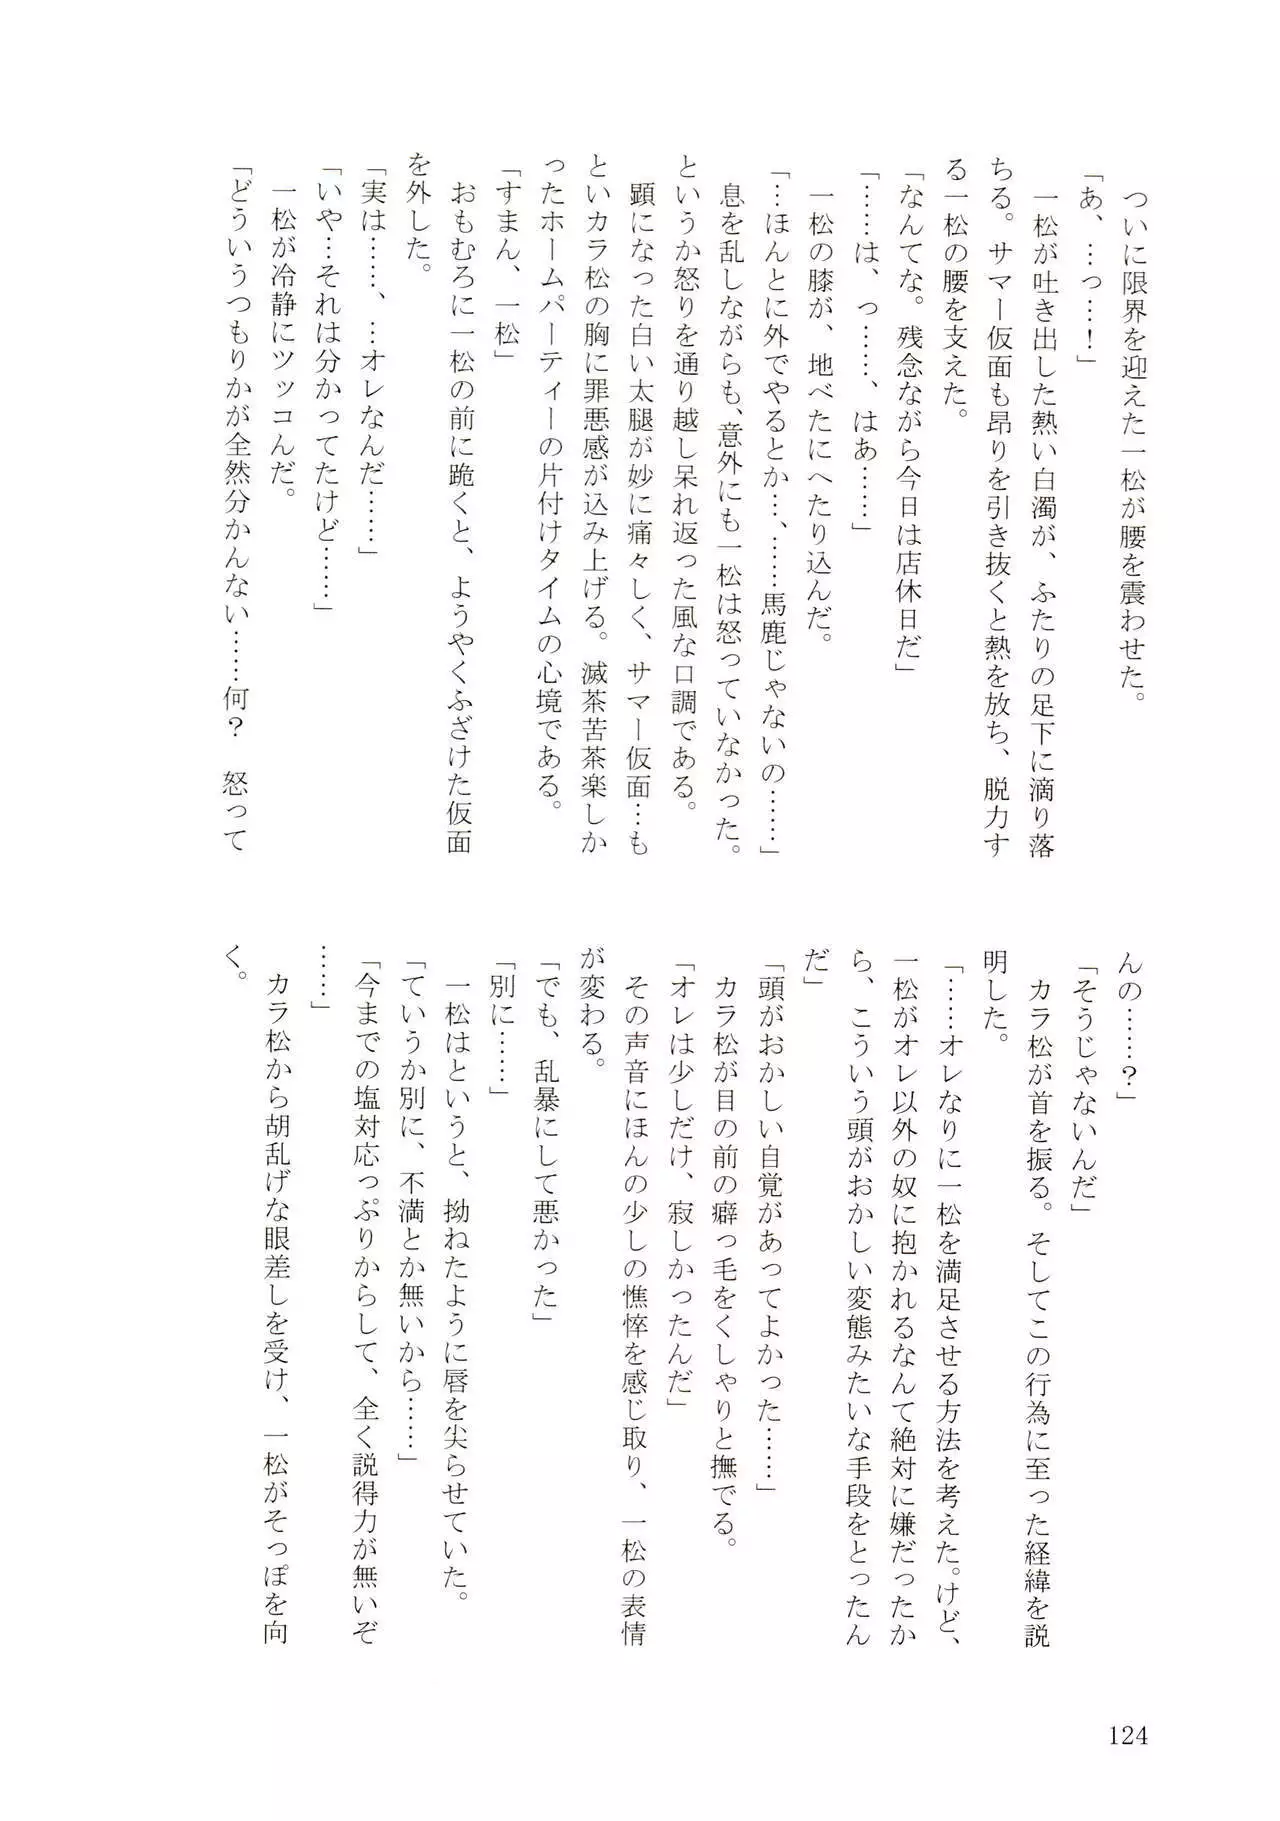 ついに限界を迎えた一松が腰を震わせた。
「あ、…っ…！」
　一松が吐き出した熱い白濁が、ふたりの足下に滴り落
ちる。サマー仮面も昂りを引き抜くと熱を放ち、脱力す
る一松の腰を支えた。
「なんてな。残念ながら今日は店休日だ」
「……は、っ……、はあ……」
　一松の膝が、地べたにへたり込んだ。
「…ほんとに外でやるとか…、……馬鹿じゃないの……」
　息を乱しながらも、意外にも一松は怒っていなかった。
というか怒りを通り越し呆れ返った風な口調である。
　顕になった白い太腿が妙に痛々しく、サマー仮面…も
といカラ松の胸に罪悪感が込み上げる。滅茶苦茶楽しか
ったホームパーティーの片付けタイムの心境である。
「すまん、一松」
　おもむろに一松の前に跪くと、ようやくふざけた仮面
を外した。
「実は……、…オレなんだ……」
「いや…それは分かってたけど……」
　一松が冷静にツッコんだ。
「どういうつもりかが全然分かんない……何？　怒って
んの……？」
「そうじゃないんだ」
　カラ松が首を振る。そしてこの行為に至った経緯を説
明した。
「……オレなりに一松を満足させる方法を考えた。けど、
一松がオレ以外の奴に抱かれるなんて絶対に嫌だったか
ら、こういう頭がおかしい変態みたいな手段をとったん
だ」
「頭がおかしい自覚があってよかった……」
　カラ松が目の前の癖っ毛をくしゃりと撫でる。
「オレは少しだけ、寂しかったんだ」
　その声音にほんの少しの憔悴を感じ取り、一松の表情
が変わる。
「でも、乱暴にして悪かった」
「別に……」
　一松はというと、拗ねたように唇を尖らせていた。
「ていうか別に、不満とか無いから……」
「今までの塩対応っぷりからして、全く説得力が無いぞ
……」
　カラ松から胡乱げな眼差しを受け、一松がそっぽを向
く。
124